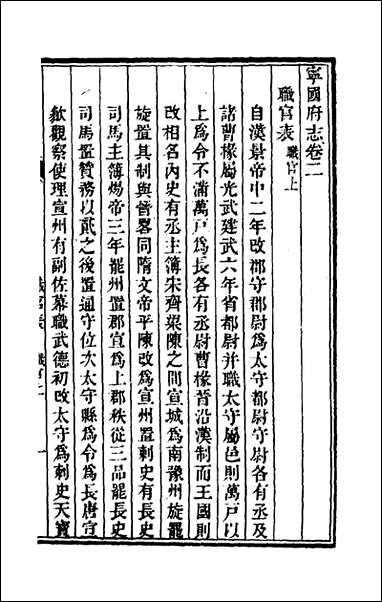 寧國府志卷二
職官表 職官上
自漢景帝中二年改郡守郡尉為太守都尉守尉各有丞及
諸曹掾屬光武建武六年省都尉并職太守屬邑則萬戸以
上為令不滿萬戸為長各有丞尉曹掾晉沿漢制而王國則
改相名內史有丞主簿宋齊梁陳之間宣城為南豫州旋罷
旋置其制與晉畧同隋文帝平陳改為宣州置刺史有長史
司馬主簿煬帝三年罷州置郡宣為上郡秩從三品罷長史
司馬置贊務以貳之後置通守位次太守縣為令為長唐宣
歙觀察使理宣州有副佐幕職武德初改太守為刺史天寶
職官表 職官上 一